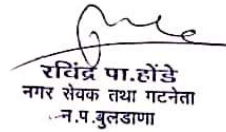 रविंद्र पा.होंडे
नगर सेवक तथा गटनेता
न.प.बुलडाणा